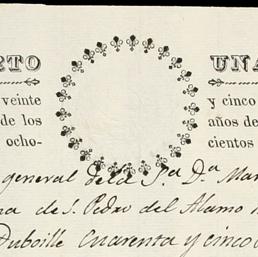 RTO UNA
veinte y cinco
de los años de
ocho- cientos
general de la S.ª D.ª Mar
na de S. Pedro del Alamo
Duboille Cuarenta y cinco